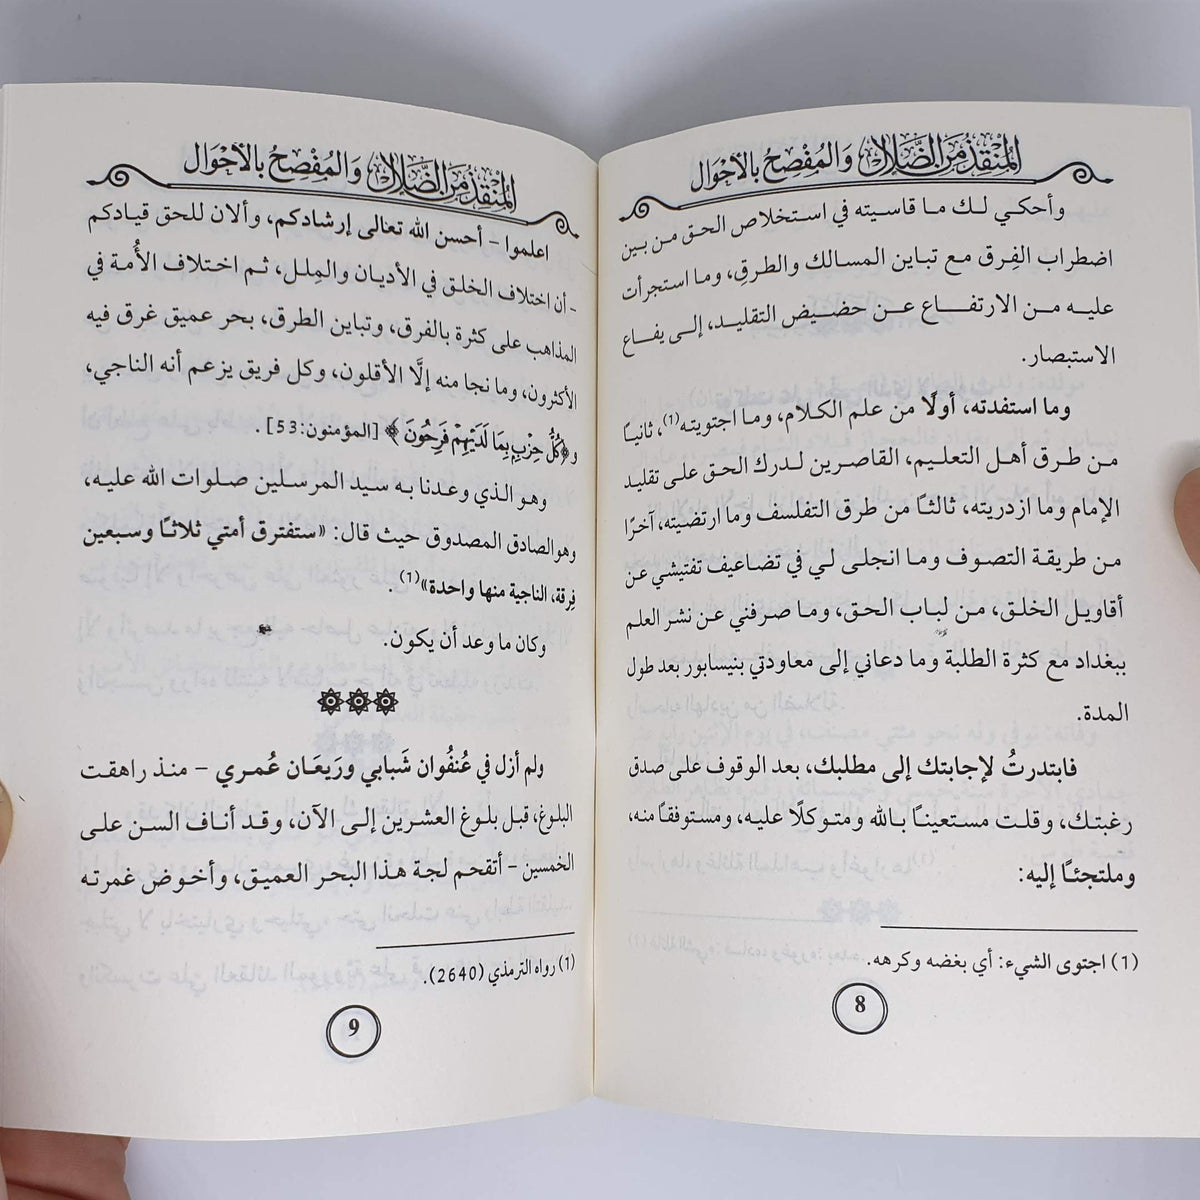 المنقذ من الضلال والمفصح بالأحوال
وأحكي لك ما قاسيته في استخلاص الحق من بين
اضطراب الفِرق مع تباين المسالك والطرق، وما استجرأت
عليه من الارتفاع عن حضيض التقليد، إلى يفاع
الاستبصار.
وما استفدته، أولًا من علم الكلام، وما اجتويته(1)، ثانيًا
من طرق أهل التعليم، القاصرين لدرك الحق على تقليد
الإمام وما ازدريته، ثالثًا من طرق التفلسف وما ارتضيته، آخرًا
من طريقة التصوف وما انجلى لي في تضاعيف تفتيشي عن
أقاويل الخلق، من لباب الحق، وما صرفني عن نشر العلم
ببغداد مع كثرة الطلبة وما دعاني إلى معاودتي بنيسابور بعد طول
المدة.
فابتدرتُ لإجابتك إلى مطلبك، بعد الوقوف على صدق
رغبتك، وقلت مستعينًا بالله ومتوكلًا عليه، ومستوفقًا منه،
وملتجئًا إليه:
(1) اجتوى الشيء: أي بغضه وكرهه.
8
المنقذ من الضلال والمفصح بالأحوال
اعلموا – أحسن الله تعالى إرشادكم، وألان للحق قيادكم
– أن اختلاف الخلق في الأديان والمِلل، ثم اختلاف الأُمة في
المذاهب على كثرة بالفرق، وتباين الطرق، بحر عميق غرق فيه
الأكثرون، وما نجا منه إلَّا الأقلون، وكل فريق يزعم أنه الناجي،
و﴿كُلُّ حِزْبٍ بِمَا لَدَيْهِمْ فَرِحُونَ﴾ [المؤمنون:53].
وهو الذي وعدنا به سيد المرسلين صلوات الله عليه،
وهو الصادق المصدوق حيث قال: «ستفترق أمتي ثلاثًا وسبعين
فِرقة، الناجية منها واحدة»(1).
وكان ما وعد أن يكون.
ولم أزل في عُنفُوان شَبابي ورَيعَان عُمري – منذ راهقت
البلوغ، قبل بلوغ العشرين إلى الآن، وقد أناف السن على
الخمسين – أتقحم لجة هذا البحر العميق، وأخوض غمرته
(1) رواه الترمذي (2640).
9